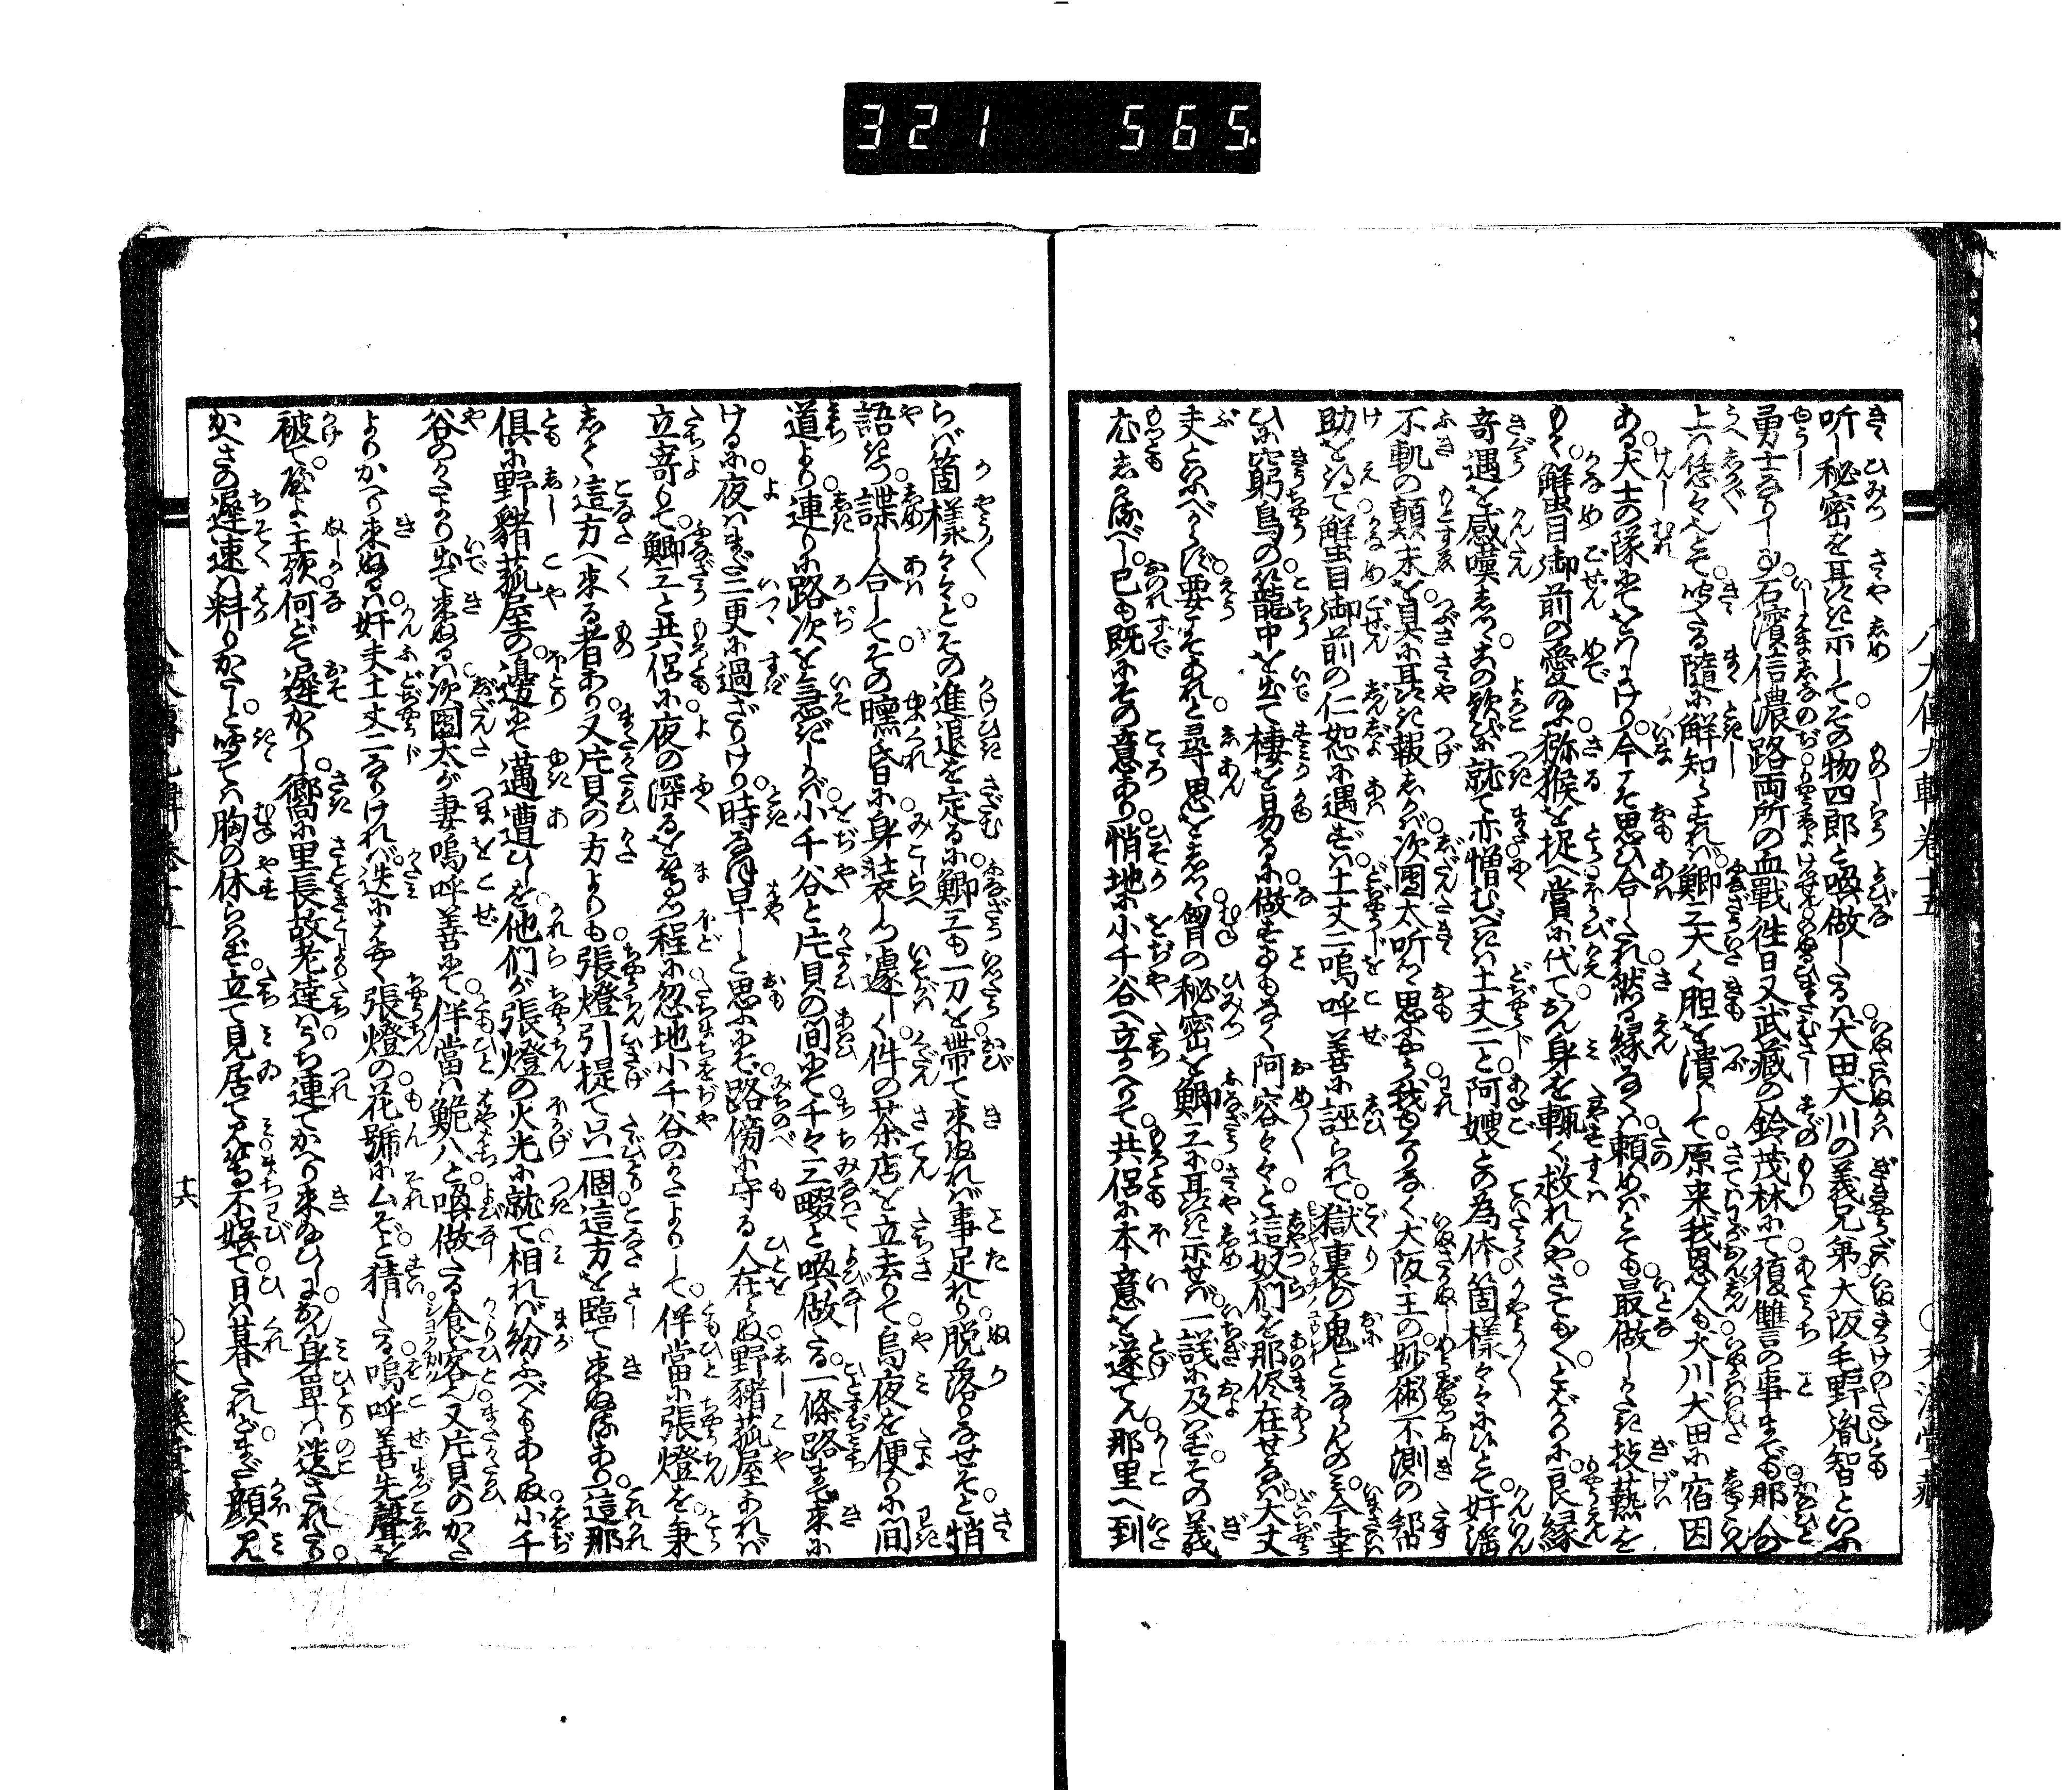 321 565
听し秘密を耳語き示してその物四郎と喚做したるは犬田犬川の義兄弟犬阪毛野胤智といふ
勇士なりし事石濱信濃路両所の血戰徃日又武藏の鈴茂林にて復讐の事までも那人の
上は恁々也とそ听たる隨に解知らすれば鯽三大く胆を潰して原来我恩人も犬川犬田に宿因
ある犬士の隊にてをはしけり今こそ思ひ合したれ然る縁あらば頼めばとても最做しかたき技藝を
もて蟹目御前の愛の獼猴を捉へ賞に代ておん身を輒く救れんやさてもさてもとばかりに良縁
奇遇を感嘆しつその歓びに就て亦憎むべきは土丈二と阿嫂との為体箇様々々にいとて奸滛
不軌の顛末を具に耳語き報しかば次團太听つゝ思ふやう我もなく犬阪主の妙術不測の幇
助を得て蟹目御前の仁恕に遇ずは土丈二嗚呼善に誣られて獄裏の鬼とならんのみ今幸
ひに窮鳥の籠中を出て棲を易るに做す事もなく阿容々々と這奴們を那侭在せなば大丈
夫といふべからず要こそあれと尋思をしつゝ曾の秘密を鯽三に耳語き示せば一議に及ばずその義
尤しかるべし己も既にその意あり悄地に小千谷へ立かへりて共侶に本意を遂てん那里へ到
らば箇樣々々とその進退を定るに鯽三も一刀を帶て來ぬれば事足れり脱落りなせそと悄
語きつ諜し合してその曛昏に身装しつ遽しく件の茶店を立去りて烏夜を便りに間
道より連りに路次を急ぎしかば小千谷と片貝の間にて千々三畷と喚做たる一條路まで來に
けるに夜はまだ三更に過ざりけり時なほ早しと思ふにぞ路傍に守る人在らぬ野豬菰屋あれば
立寄りて鯽三と共侶に夜の深るをまつ程に忽地小千谷のかたよりして伴當に張燈を秉
して這方へ來る者あり又片貝の方よりも張燈引提て只一個這方を臨て來ぬるあり這那
俱に野豬菰屋の邊にて邁遭ひしを他們が張燈の火光に就て相れば紛ふべもあらぬ小千
谷のかたより出て來ぬるは次團太が妻嗚呼善にて伴當は鮠八と喚做たる食客也又片貝のかた
よりかへり來ぬるは奸夫土丈二なりければ迭にはやく張燈の花號にムぞと猜したる嗚呼善先聲を
被てやよ主頭何どて遲かりし嚮に里長故老達はうち連てかへり來ましひしにおん身単は送されたる
かへさの遲速は料りかたしと听ては胸の休らはず立て見居て見まち不娯て日は暮たれどまだ顔見
八犬傳九輯巻十五
十六